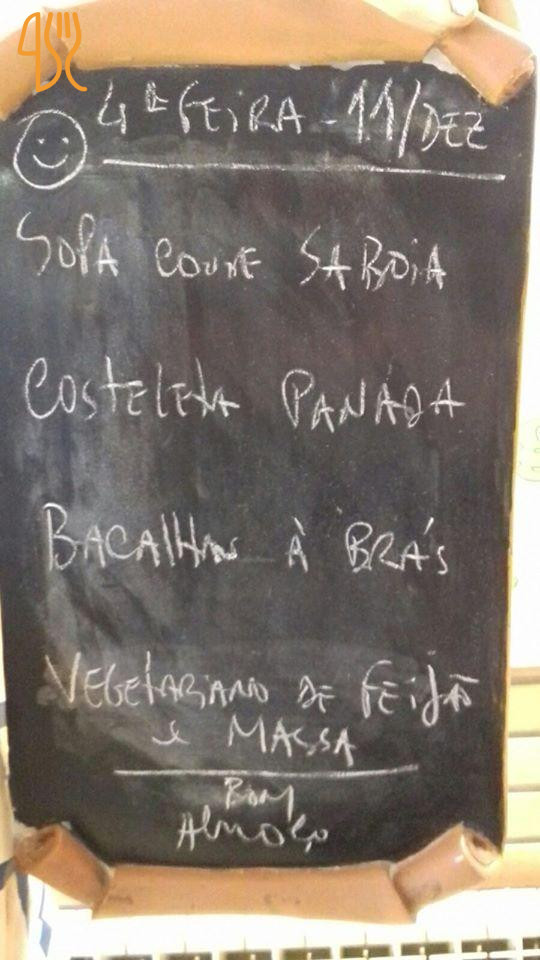 4ª FEIRA - 11/DEZ
SOPA COUVE SABOIA
COSTELETA PANADA
BACALHAU À BRÁS
VEGETARIANO DE FEIJÃO
e MASSA
BOM
ALMOÇO